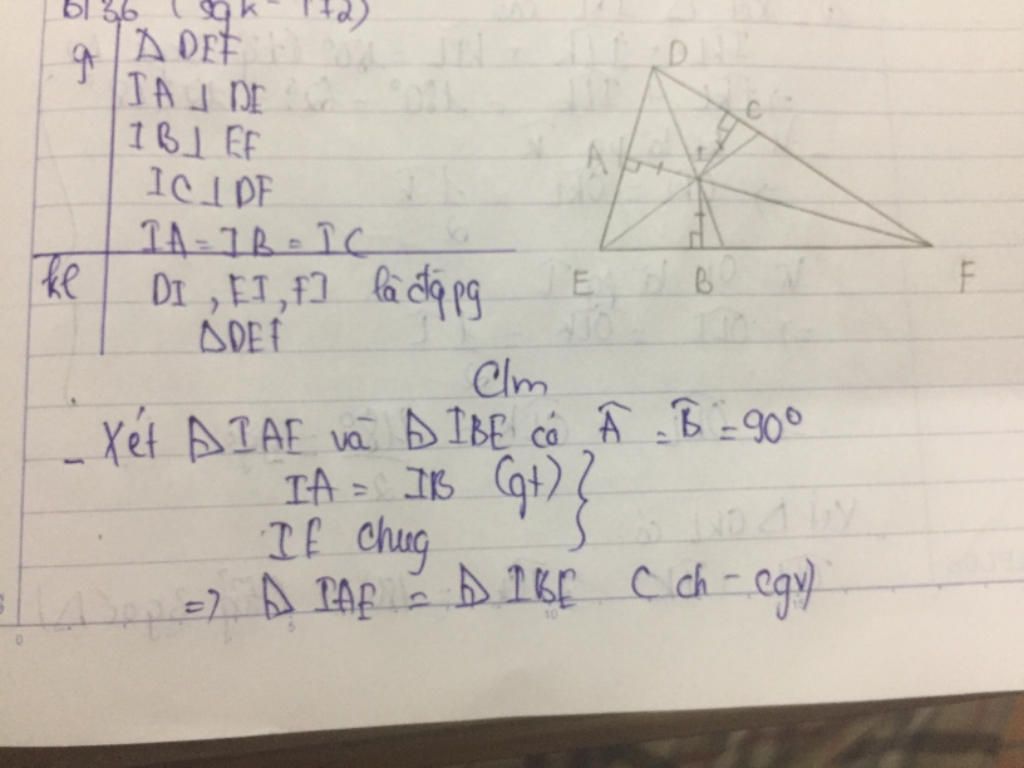 b136 (sgk - T72)
gt
Δ DEF
IA ⊥ DE
IB ⊥ EF
IC ⊥ DF
IA = IB = IC
kl
DI, EI, FI là đg pg
ΔDEF
D
C
A
I
E
B
F
C/m
- Xét Δ IAE và Δ IBE có Â = B̂ = 90°
IA = IB (gt) }
IE chug
=> Δ IAE = Δ IBE (ch - cgv)